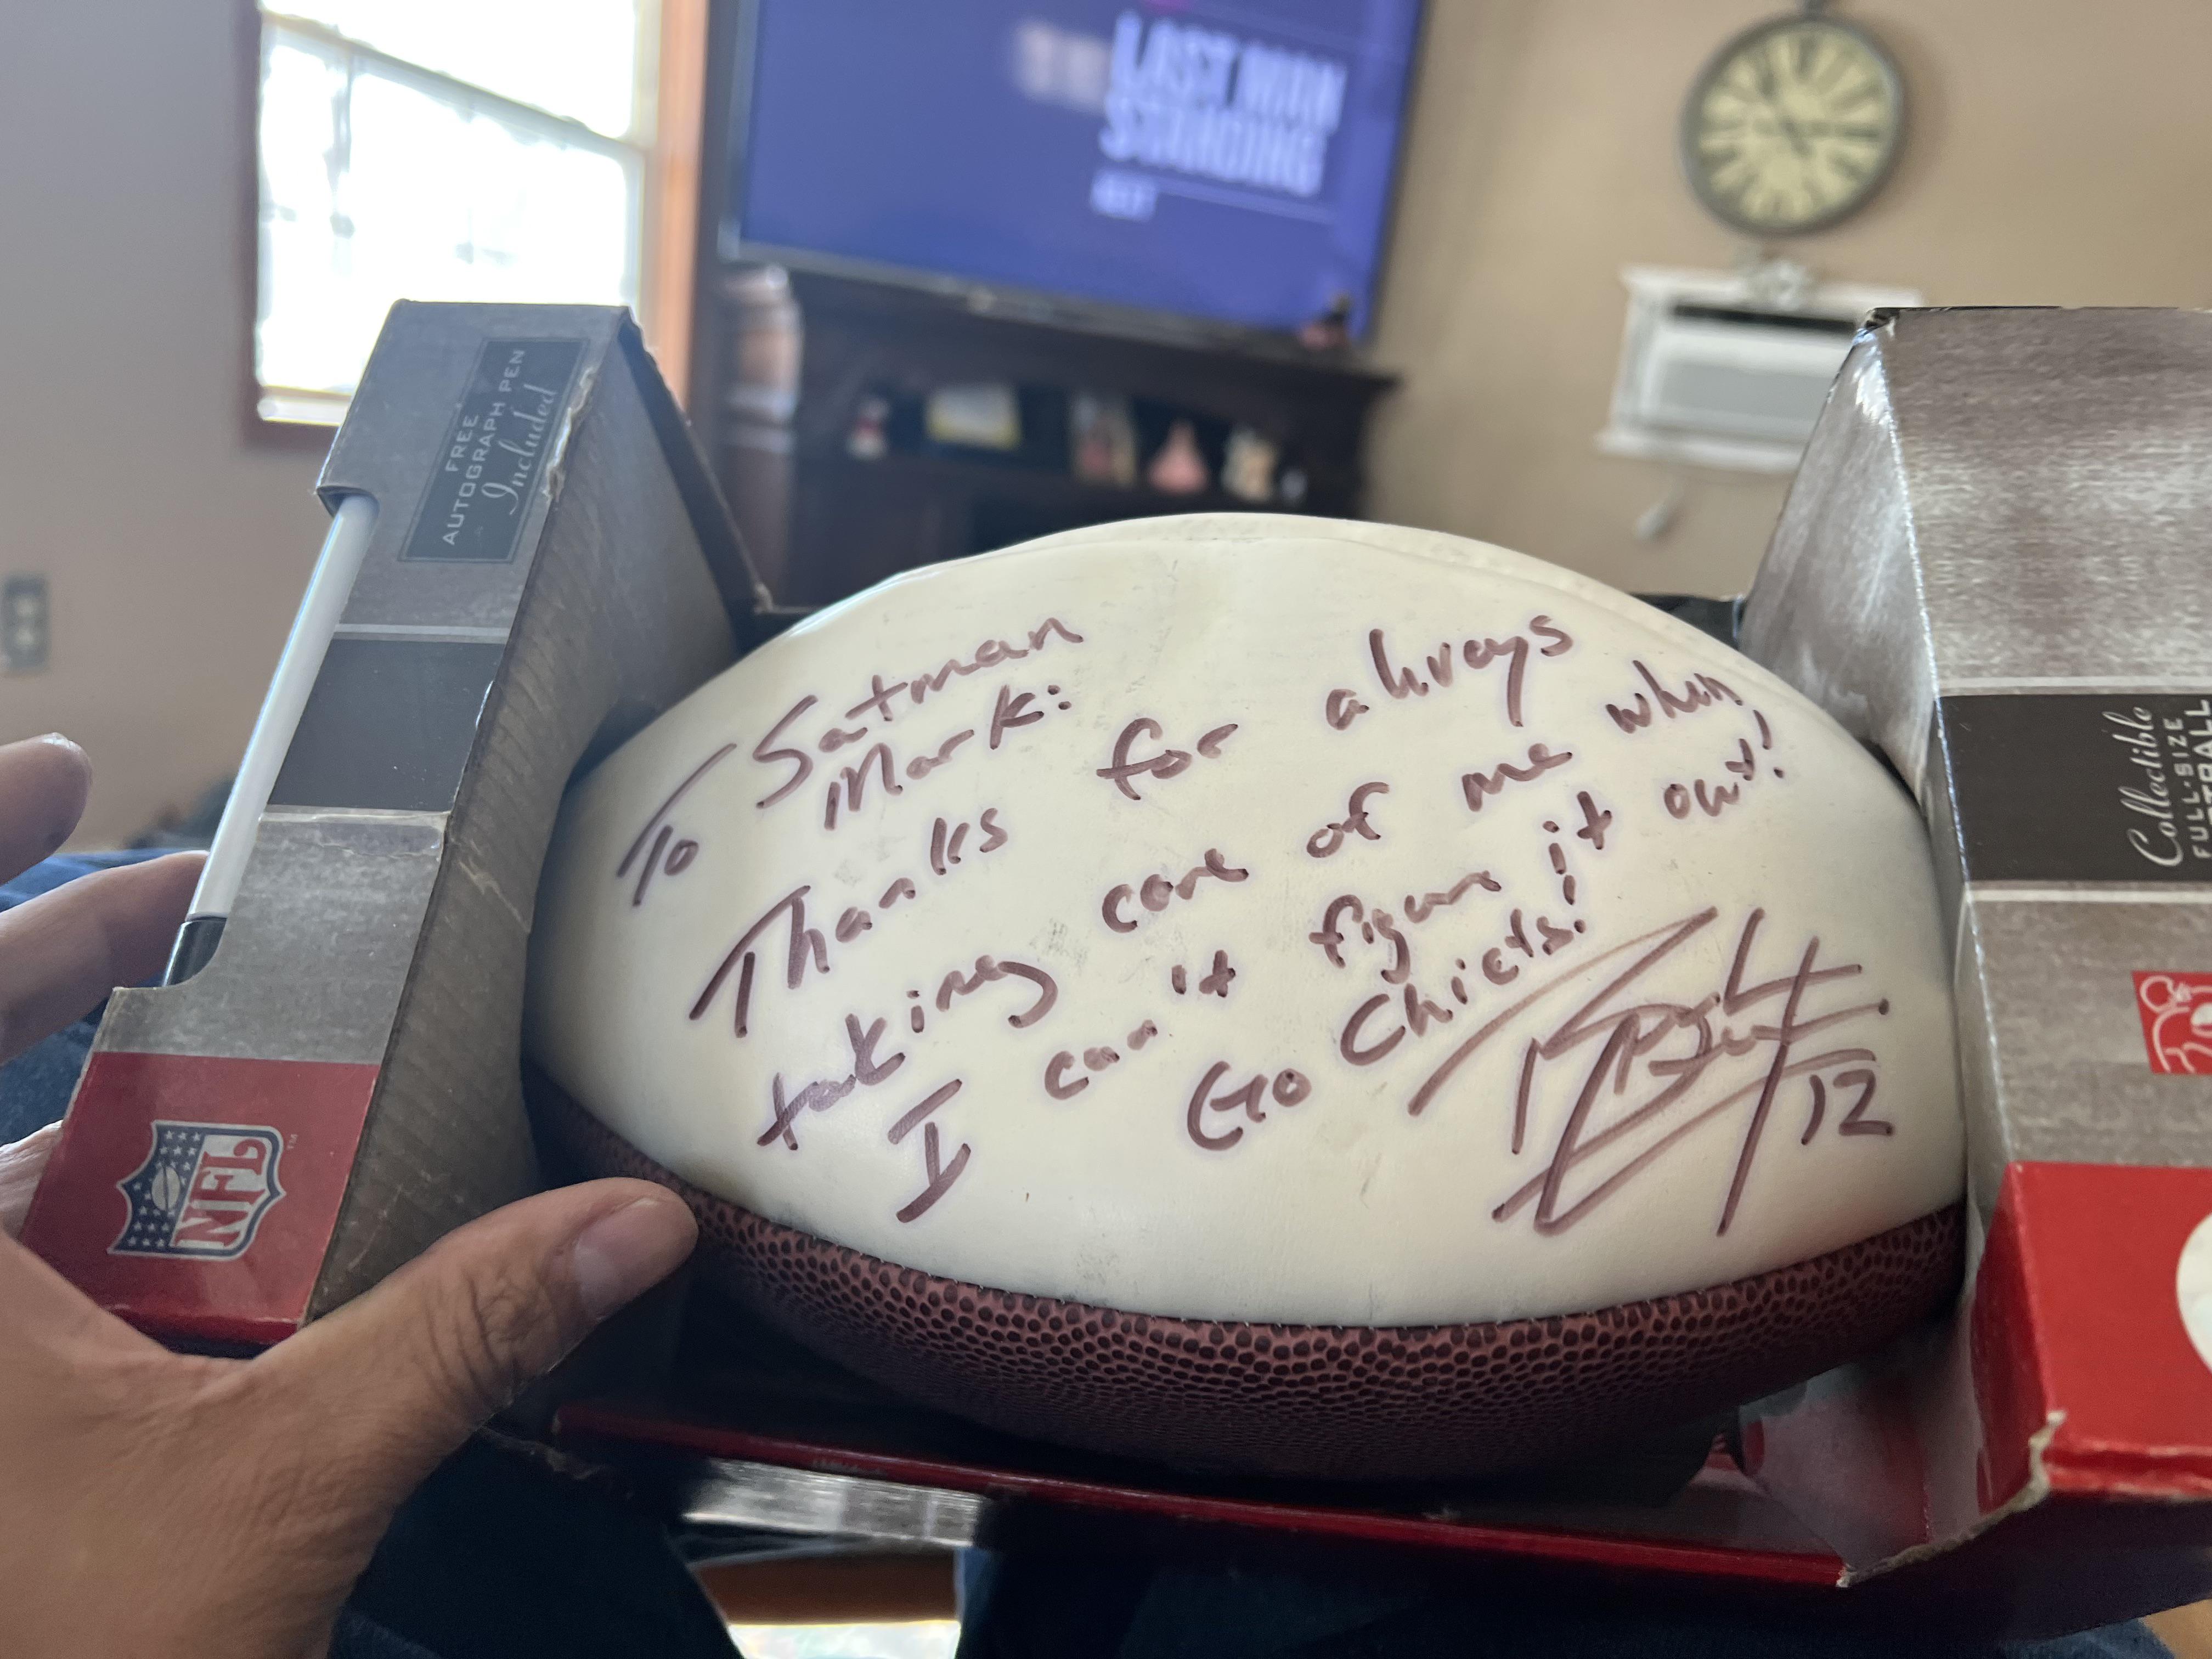 LAST MAN
STANDING
FREE
AUTOGRAPH PEN
Included
NFL
To Satman
Mark:
Thanks for always
taking care of me when
I can't figure it out!
Go Chiefs!
12
Collectible
FULL-SIZE